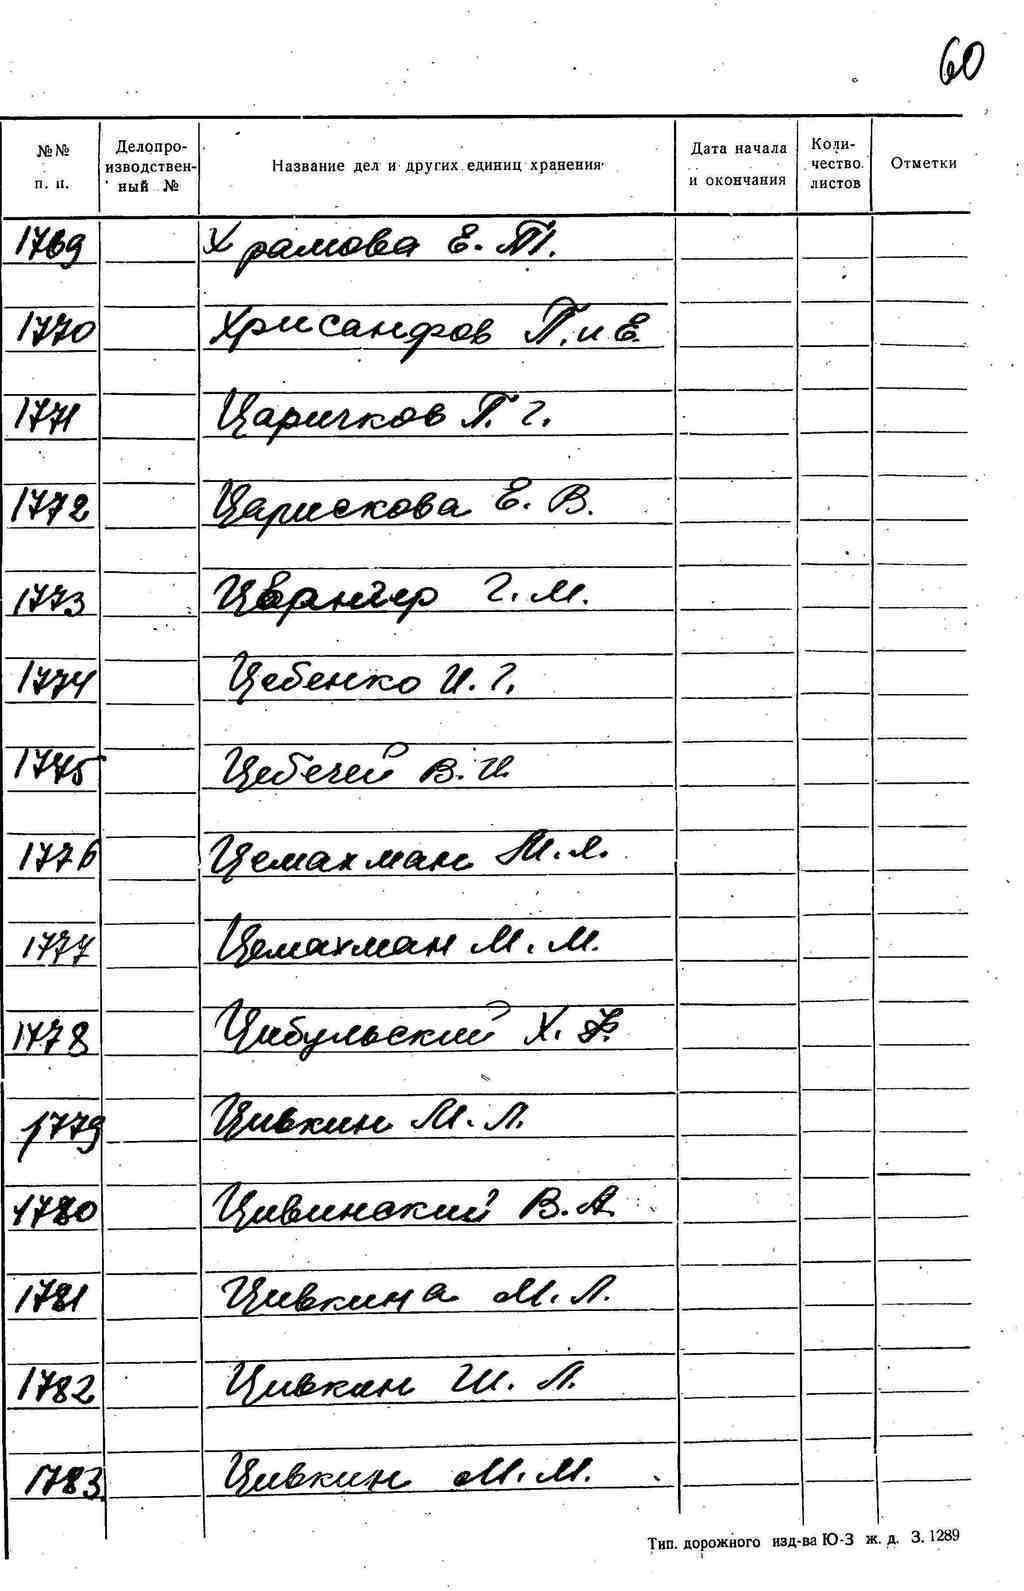 60
№№ п. п. Делопроизводственный № Название дел и других единиц хранения Дата начала и окончания Количество листов Отметки
1769 Храмова Е. П.
1770 Хрисанфов П. и Е.
1771 Царичков П. Г.
1772 Царискова Е. В.
1773 Цвангер Г. М.
1774 Цебенко И. Г.
1775 Цебечей В. И.
1776 Цемахман М. Я.
1777 Цемахман М. М.
1778 Цибульский Х. Ф.
1779 Цивкин М. Л.
1780 Цивинский В. А.
1781 Цивкина М. Л.
1782 Цивкин Ш. Л.
1783 Цивкин М. М.
Тип. дорожного изд-ва Ю-З ж. д. З. 1289